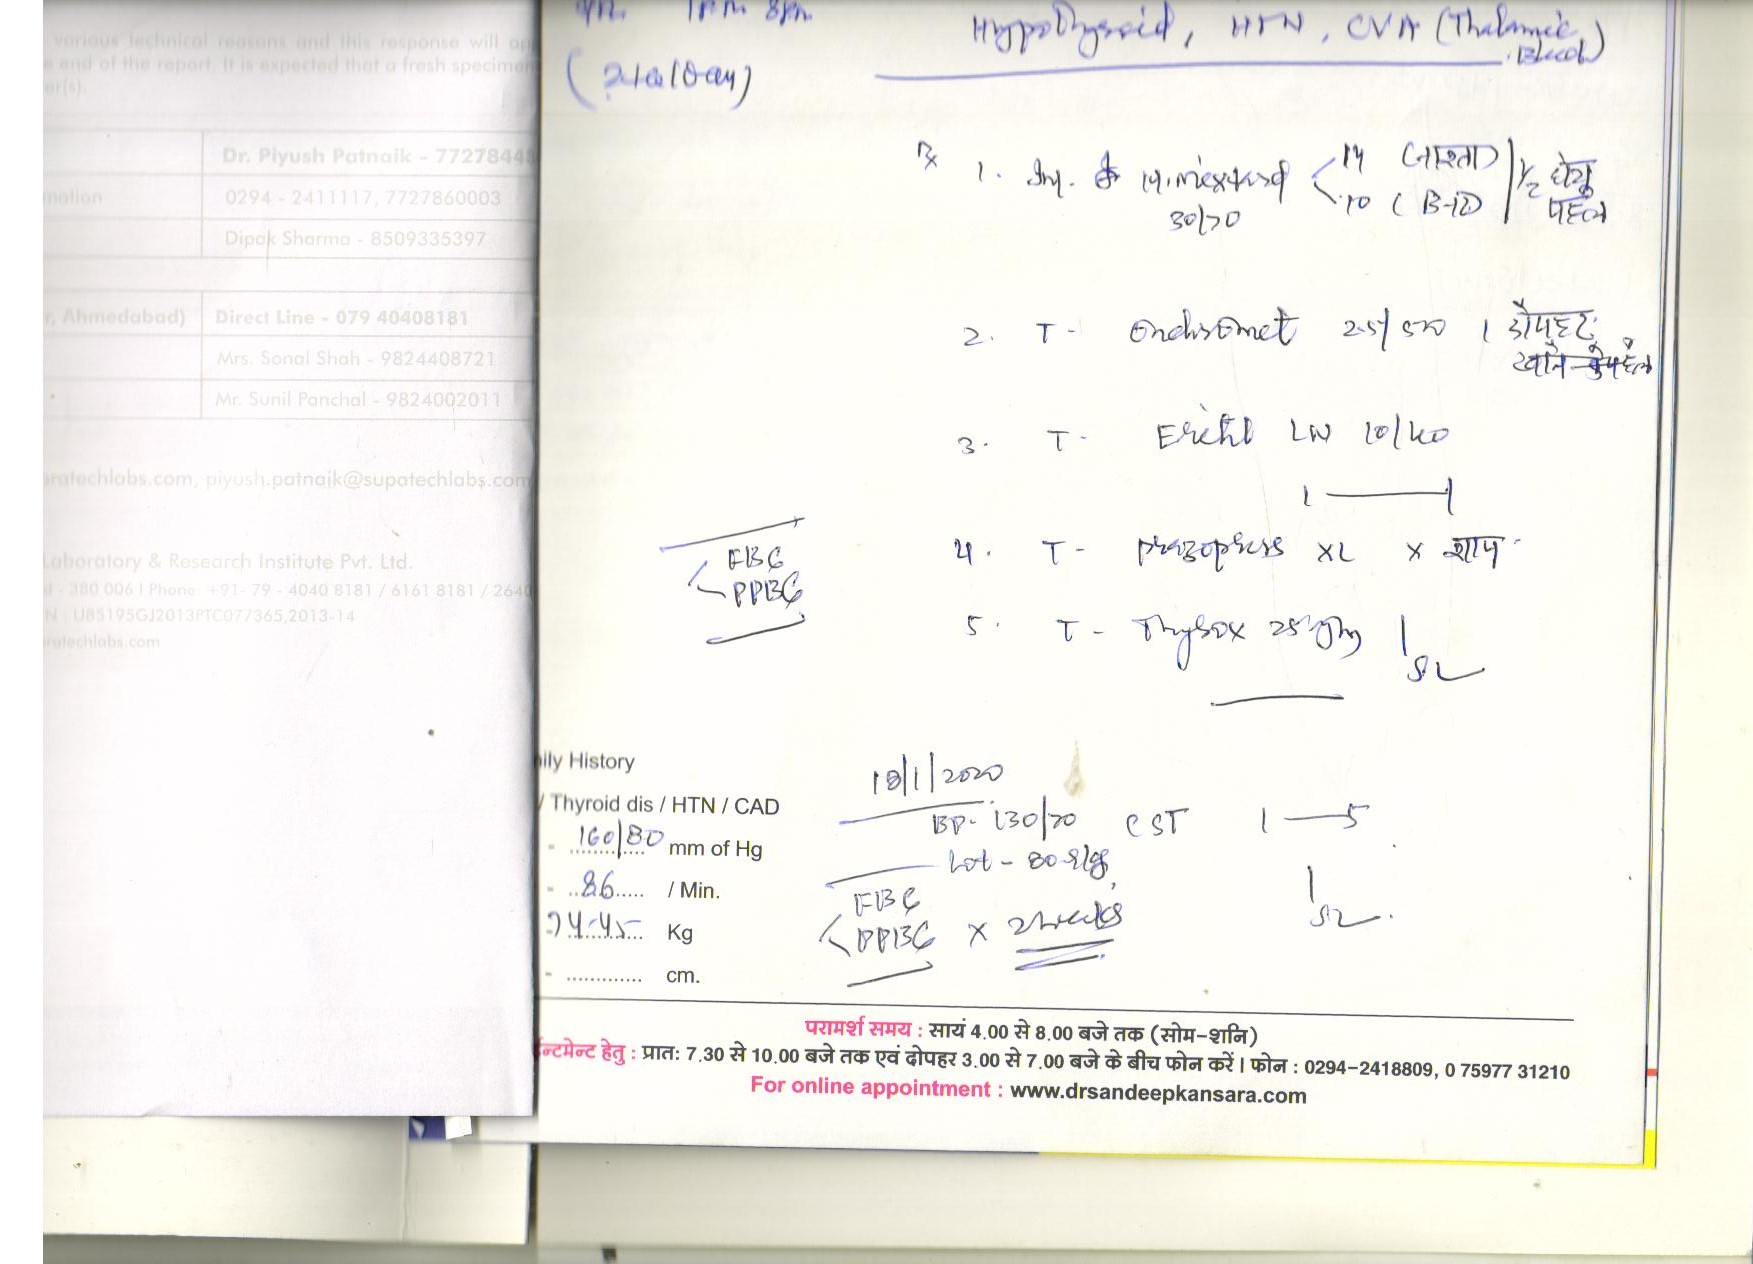 various technical reasons and this response will
end of the report. It is expected that a fresh specimen
er(s).
Dr. Piyush Patnaik - 77278448
mation
0294 - 2411117, 7727860003
Dipak Sharma - 8509335397
, Ahmedabad)
Direct Line - 079 40408181
Mrs. Sonal Shah - 9824408721
Mr. Sunil Panchal - 9824002011
ratechlabs.com, piyush.patnaik@supatechlabs.com
Laboratory & Research Institute Pvt. Ltd.
- 380 006 | Phone: +91- 79 - 4040 8181 / 6161 8181 / 2640
N : U85195GJ2013PTC077365,2013-14
ratechlabs.com
8pm
Hypothyroid, HTN, CVA (Thalamic Bleed)
Rx
1. Inj. H. mixtard 14 (नाश्ता) 1/2 घंटे पहले
30/70 10
2. T- Ondisomet 25/500 1 दोपहर
3. T- Eritel LN 10/40
1
4. T- Prazopress XL x शाम
FBG
PPBG
5. T- Thyrox 25
ily History
/ Thyroid dis / HTN / CAD
- 160/80 mm of Hg
- 86 / Min.
74.45 Kg
- ............. cm.
18/1/2020
BP- 130/70 CST 1 — 5
FBG
PPBG x 2 weeks
परामर्श समय : सायं 4.00 से 8.00 बजे तक (सोम-शनि)
न्टमेन्ट हेतु : प्रातः 7.30 से 10.00 बजे तक एवं दोपहर 3.00 से 7.00 बजे के बीच फोन करें। फोन : 0294-2418809, 0 75977 31210
For online appointment : www.drsandeepkansara.com